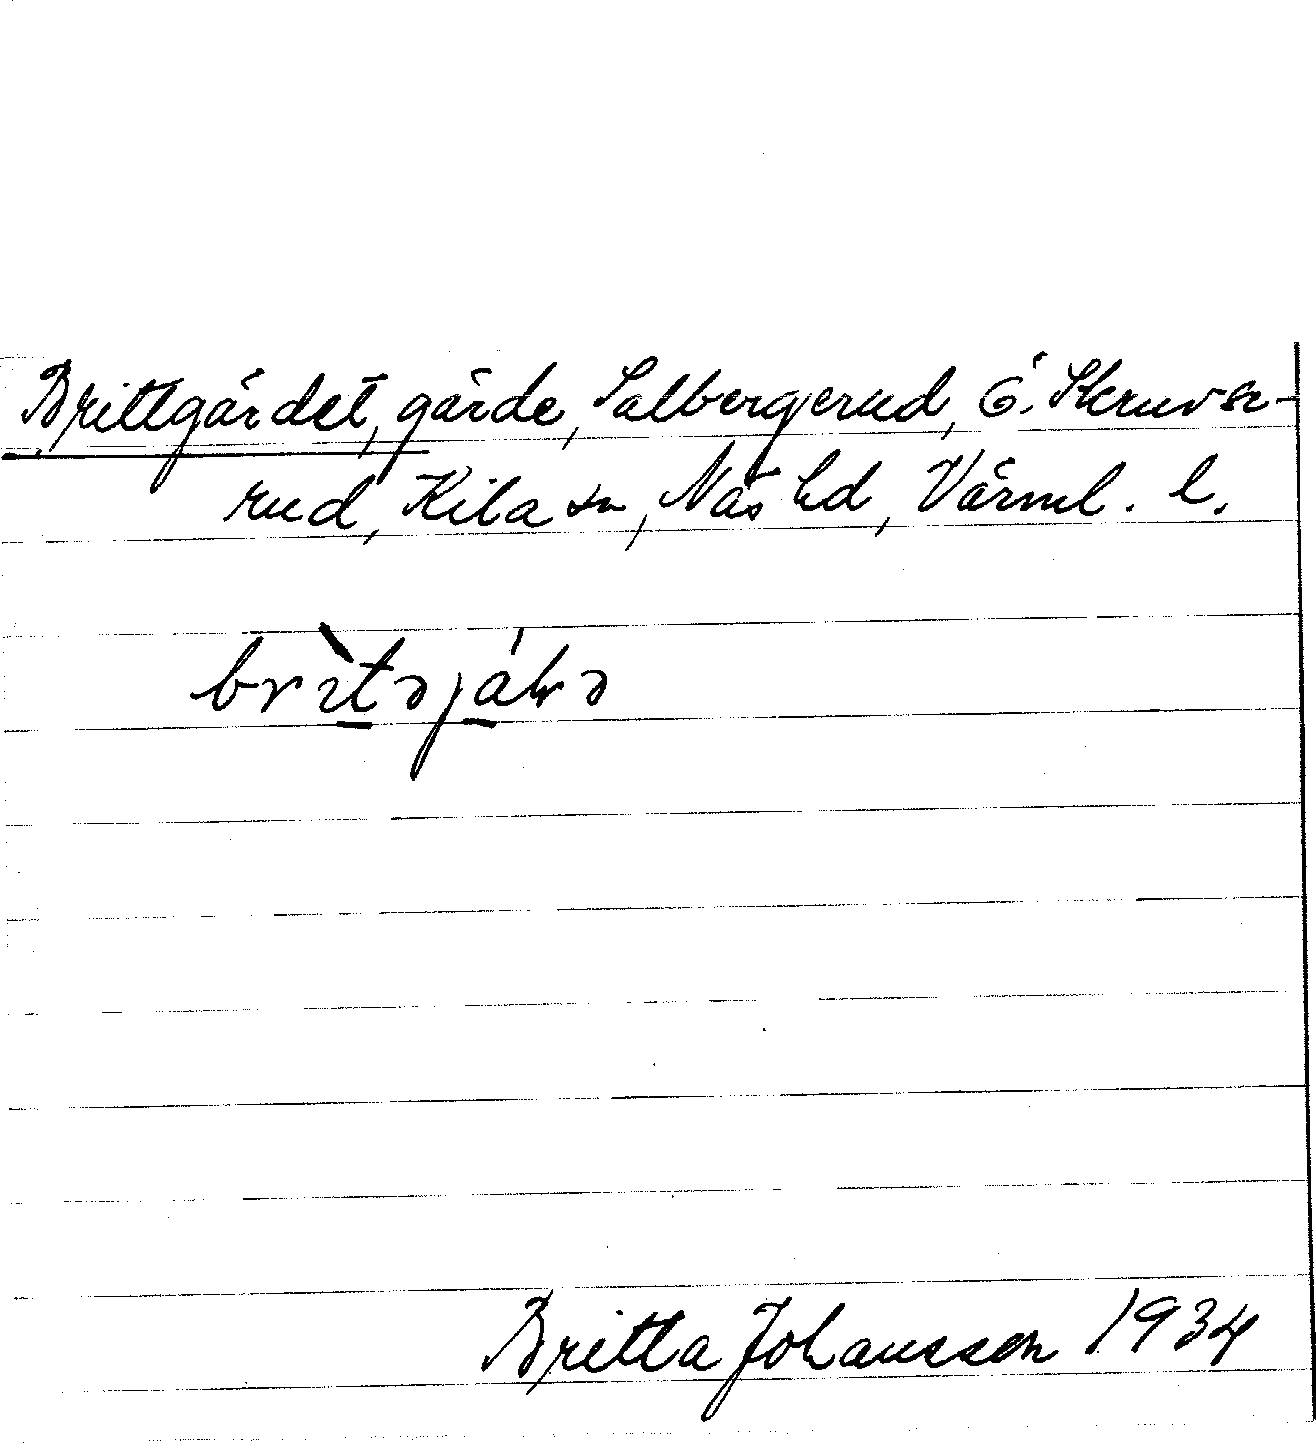 Brittgärdet, gärde, Salbergerud, Ö. Skruvse-
rud, Kila sn, Näs hd, Värml. l.
Britta Johansson 1934